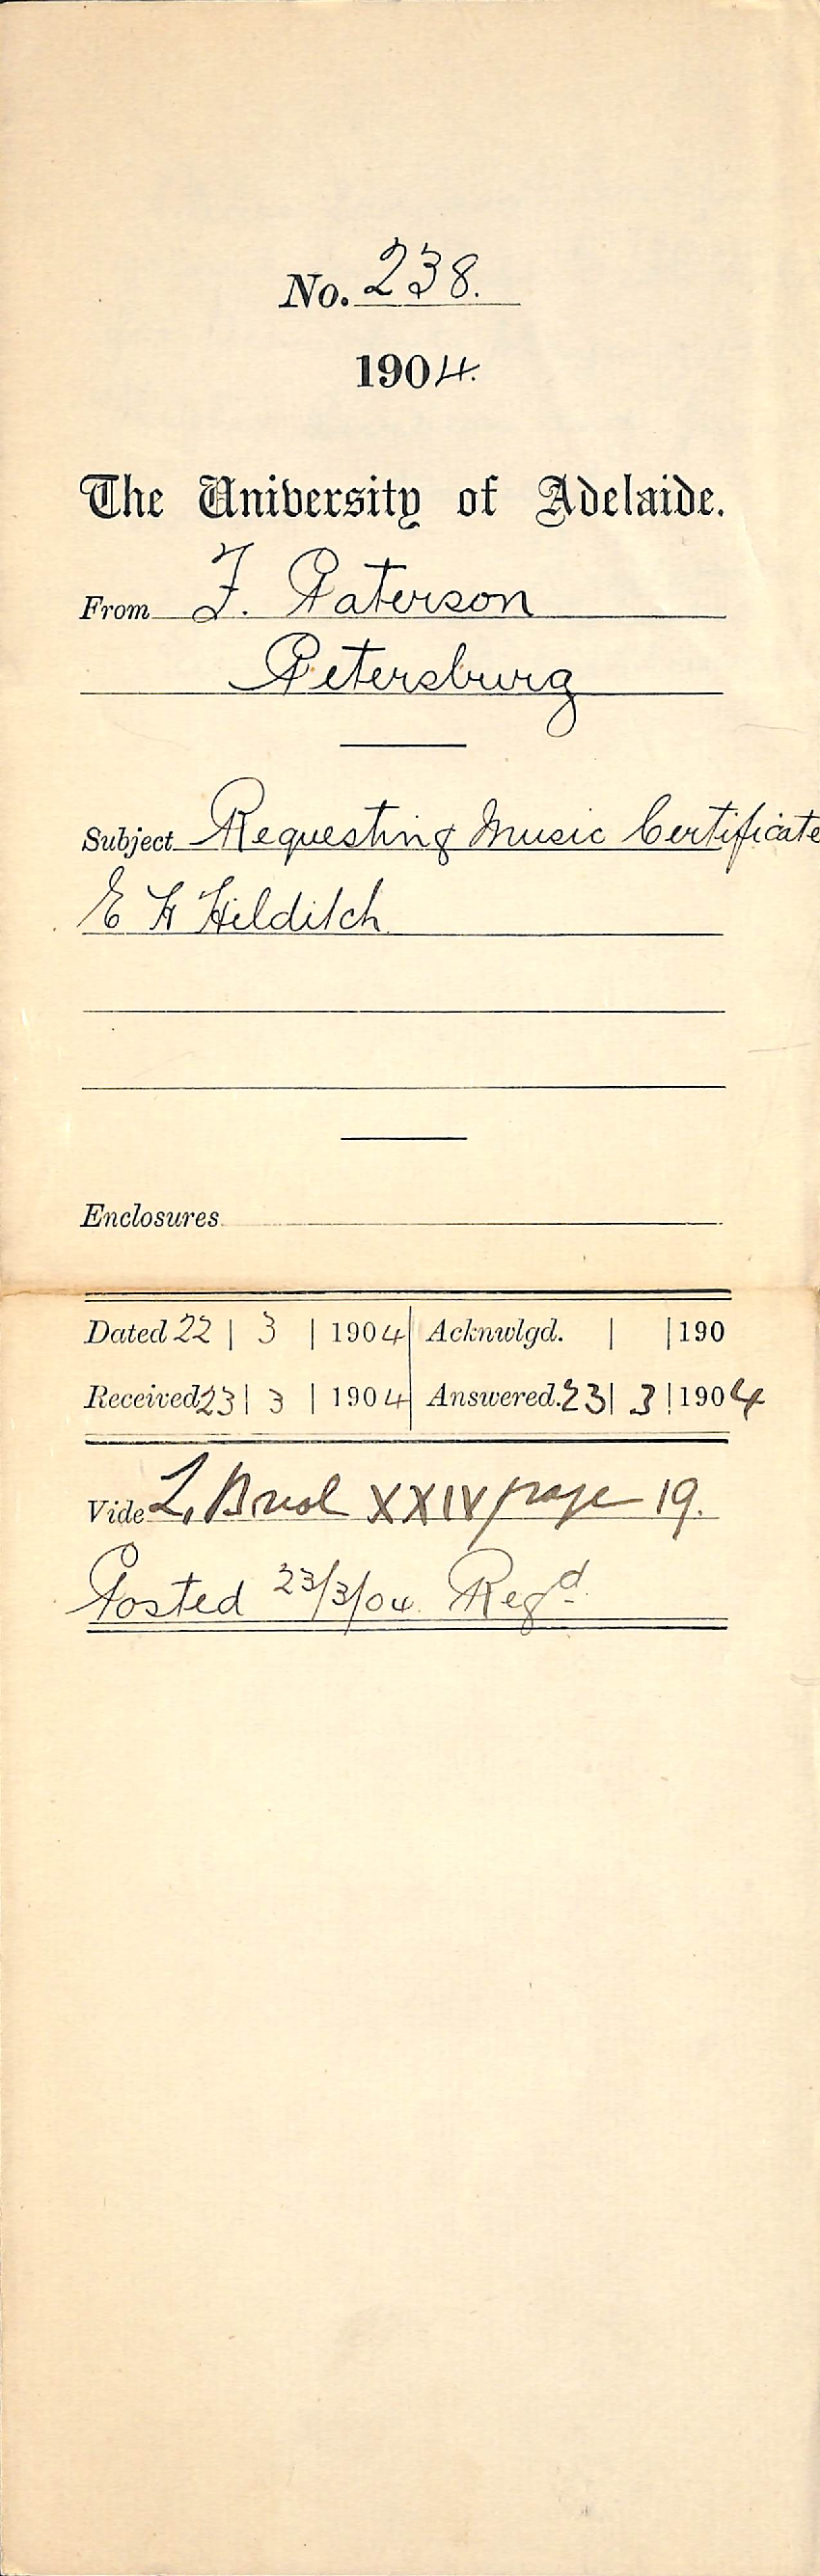 No. 238.
1904.
The University of Adelaide.
From F. Paterson
Petersburg
Subject Requesting Music Certificate
E H Hilditch
Enclosures
Dated 22 | 3 | 1904 Acknwlgd. | | 190
Received 23 | 3 | 1904 Answered. 23 | 3 | 1904
Vide L. XXIV page 19.
Posted 23/3/04 Regd